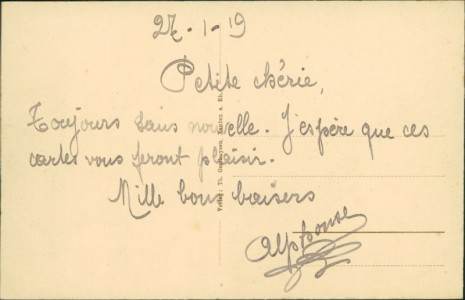 27-1-19
Petite chérie,
Toujours sans nouvelle. J'espère que ces
cartes vous feront plaisir.
Mille bons baisers
Alphonse
Verlag: Th.